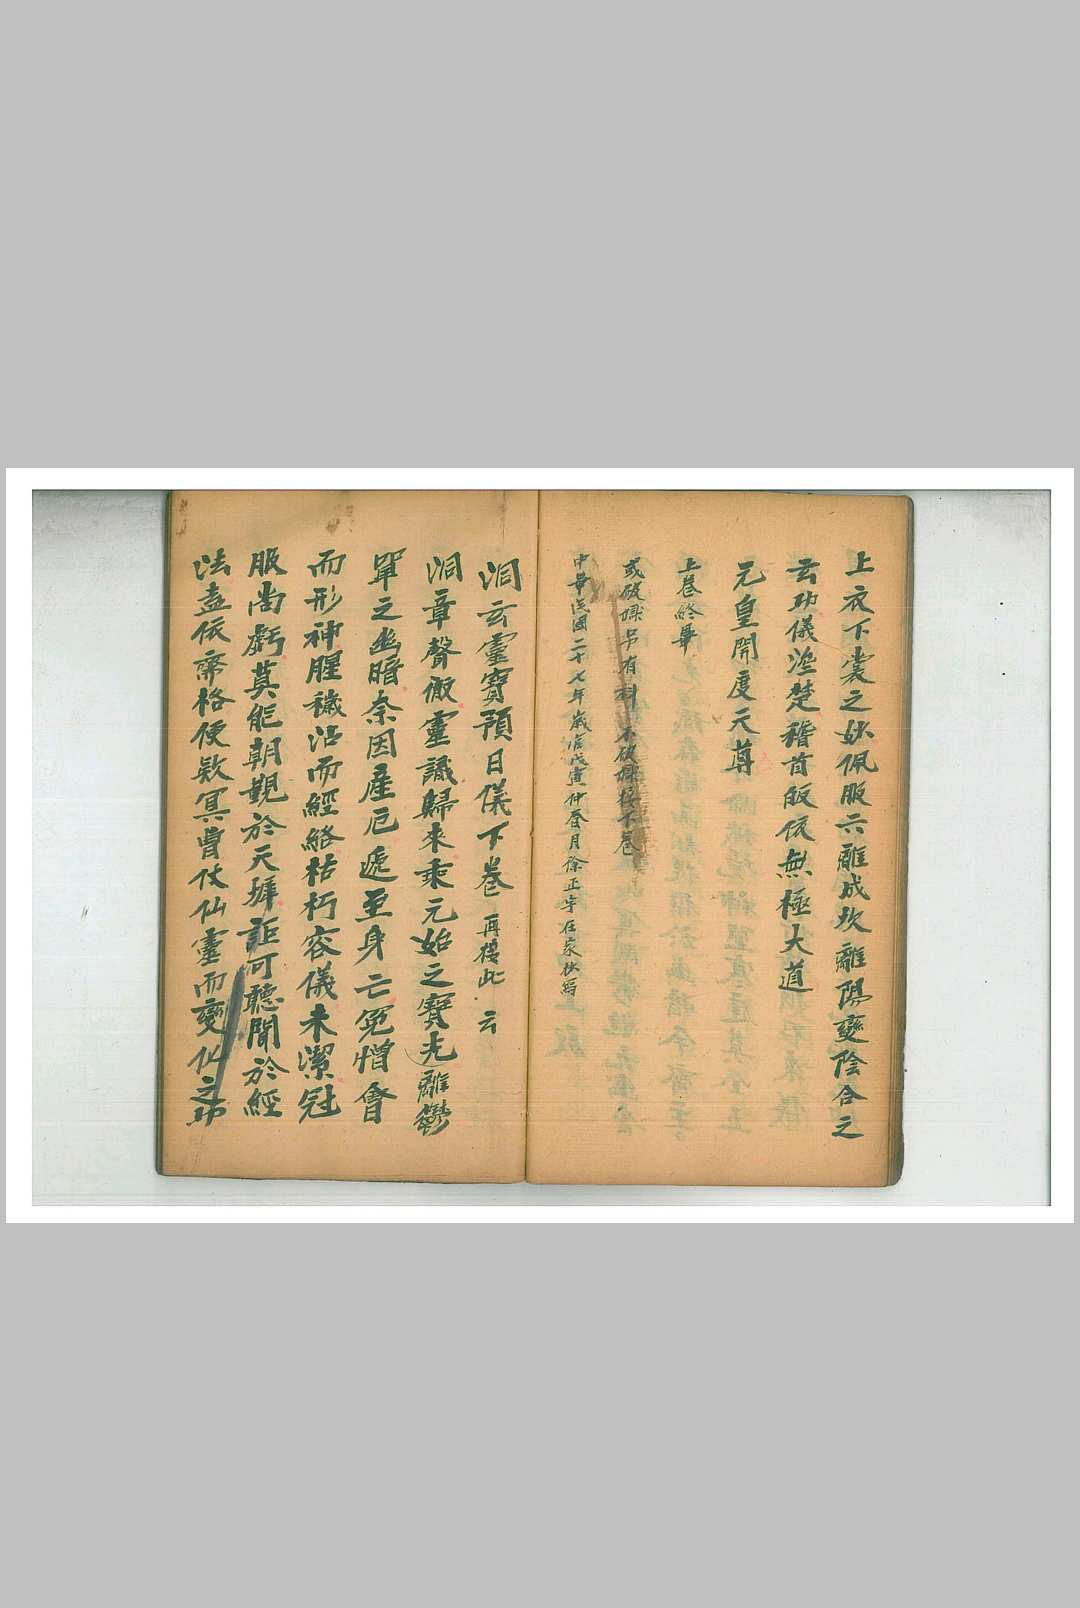 上衣下裳之妙佩服六離成坎離陽變陰合之
云功儀濟楚稽首皈依無極大道
元皇開度天尊
上卷終畢
或破保另有科不破接下卷
中華民國二十七年歲次戊寅仲春月徐正宇在家抄寫
洞云靈寶預日儀下卷 再接此 云
洞章聲徹靈識歸來乘元始之寶光離鬱
單之幽暗奈因產厄遞至身亡冤憎會
而形神腥穢沾而經絡枯朽容儀未潔冠
服尚虧莫能朝觀於天墀詎可聽聞於經
法盍依齋格使欵冥曹仗仙靈而變化之功